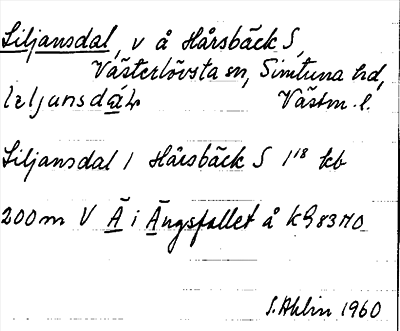 Siljansdal, v å Hårsbäck S,
Västerlövsta sn, Simtuna hd,
Västm. l.
Siljansdal 1 Hårsbäck S 1¹⁸ kb
200 m V Ä i Ängsfallet å kg 83 NO
S. Ahlin 1960